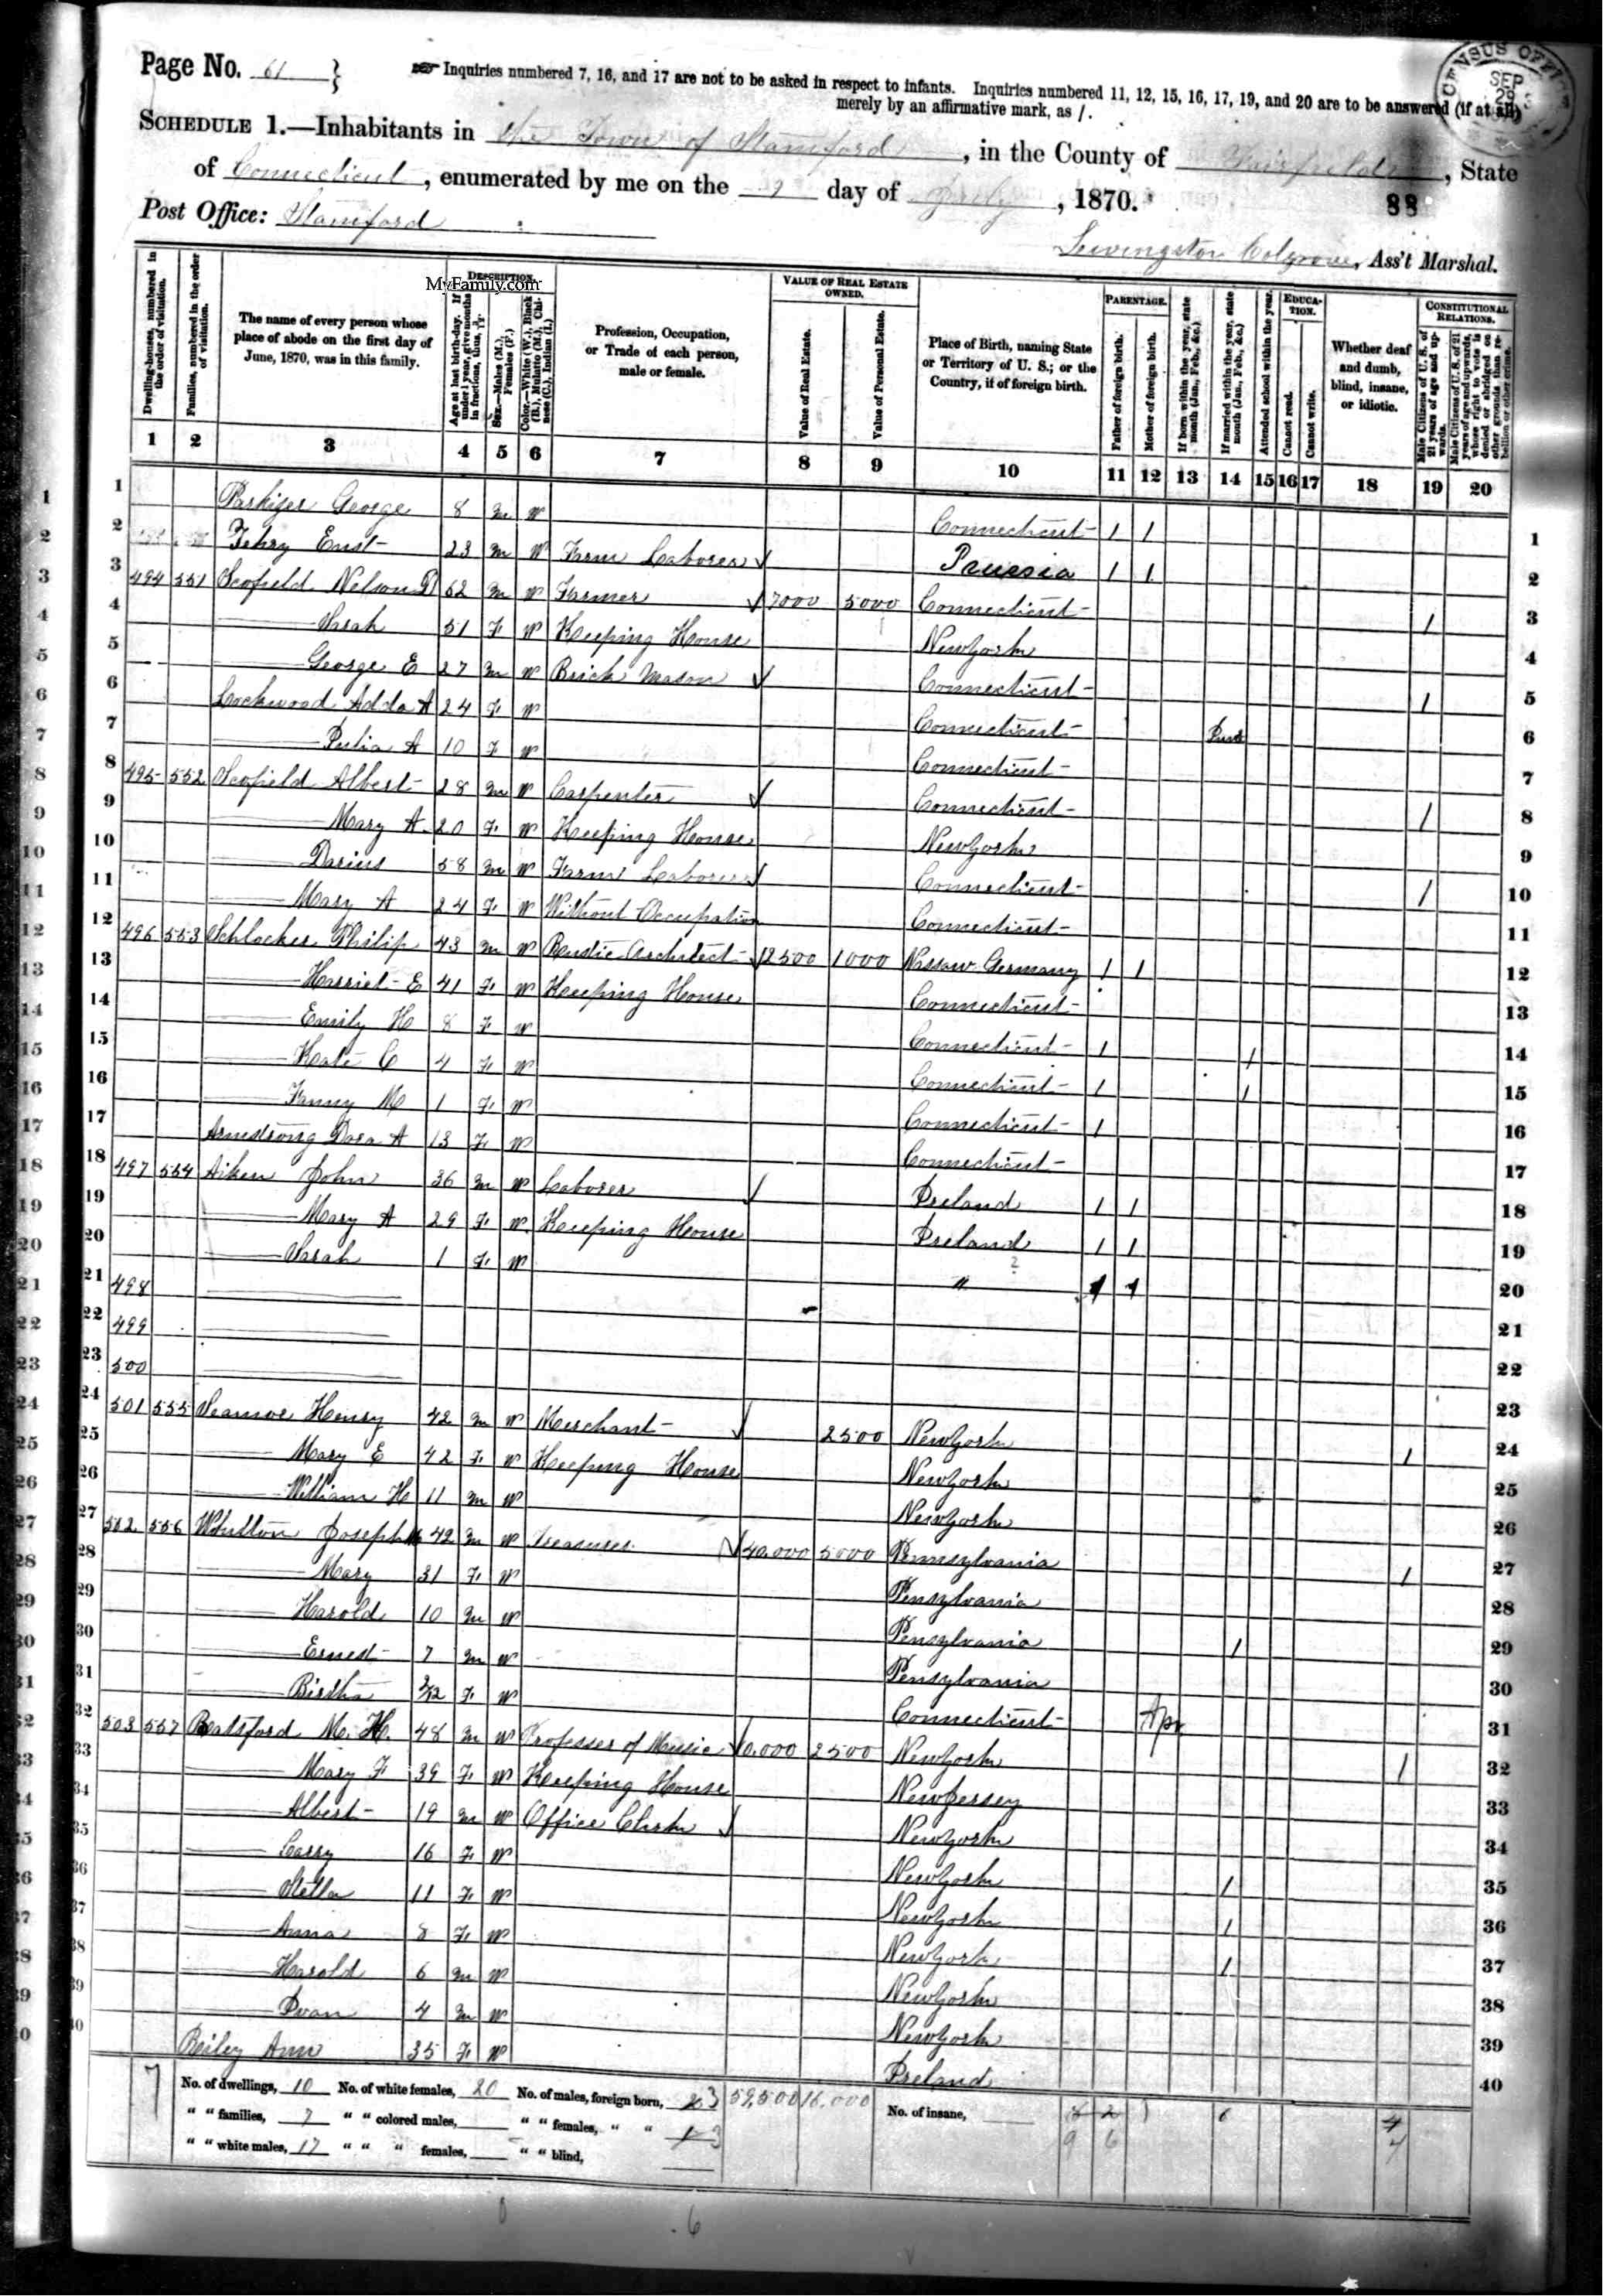 Page No. 61
Inquiries numbered 7, 16, and 17 are not to be asked in respect to infants. Inquiries numbered 11, 12, 15, 16, 17, 19, and 20 are to be answered (if at all) merely by an affirmative mark, as /.
CENSUS OFFICE SEP 29
SCHEDULE 1.—Inhabitants in the Town of Stamford, in the County of Fairfield, State
of Connecticut, enumerated by me on the 9 day of July, 1870.
88
Post Office: Stamford
Ass't Marshal.
MyFamily.com
Dwelling-houses, numbered in the order of visitation.
Families, numbered in the order of visitation.
The name of every person whose place of abode on the first day of June, 1870, was in this family.
DESCRIPTION.
Age at last birth-day. If under 1 year, give months in fractions, thus, 3/12.
Sex.—Males (M.), Females (F.)
Color.—White (W.), Black (B.), Mulatto (M.), Chinese (C.), Indian (I.)
Profession, Occupation, or Trade of each person, male or female.
VALUE OF REAL ESTATE OWNED.
Value of Real Estate.
Value of Personal Estate.
Place of Birth, naming State or Territory of U. S.; or the Country, if of foreign birth.
PARENTAGE.
Father of foreign birth.
Mother of foreign birth.
If born within the year, state month (Jan., Feb., &c.)
If married within the year, state month (Jan., Feb., &c.)
Attended school within the year.
EDUCATION.
Cannot read.
Cannot write.
Whether deaf and dumb, blind, insane, or idiotic.
CONSTITUTIONAL RELATIONS.
Male Citizens of U. S. of 21 years of age and upwards.
Male Citizens of U. S. of 21 years of age and upwards, whose right to vote is denied or abridged on other grounds than rebellion or other crime.
1 2 3 4 5 6 7 8 9 10 11 12 13 14 15 16 17 18 19 20
1 George 8 M W Connecticut 1 1
2 23 M W Farm Laborer Prussia 1 1
3 494 551 Scofield Nelson 62 M W Farmer 7000 5000 Connecticut 1
4 Sarah 51 F W Keeping House New York
5 George E 27 M W Brick Mason Connecticut 1
6 Lockwood Adda A 24 F W Connecticut
7 Julia A 10 F W Connecticut
8 495 552 Scofield Albert 28 M W Carpenter Connecticut 1
9 Mary A. 20 F W Keeping House New York
10 Darius 58 M W Farm Laborer Connecticut 1
11 Mary A 24 F W Without Occupation Connecticut
12 496 553 Schlocker Philip 43 M W Rustic Architect 2500 1000 Nassaw Germany 1 1
13 Harriet E 41 F W Keeping House Connecticut
14 Emily H 8 F W Connecticut 1 1
15 Kate C 4 F W Connecticut 1 1
16 Fanny M 1 F W Connecticut 1
17 Armstrong Dora A 13 F W Connecticut
18 497 554 Aiken John 36 M W Laborer Ireland 1 1
19 Mary A 29 F W Keeping House Ireland 1 1
20 Sarah 1 F W " ? 1 1
21 498
22 499
23 500
24 501 555 Henry 42 M W Merchant 2500 New York 1
25 Mary E 42 F W Keeping House New York
26 William H 11 M W New York
27 502 556 Joseph 42 M W Treasurer 40,000 5000 Pennsylvania 1
28 Mary 31 F W Pensylvania
29 Harold 10 M W Pensylvania 1
30 Ernest 7 M W Pensylvania
31 Birtha 2/12 F W Connecticut Apr
32 503 557 Batsford M. H. 48 M W Professer of Music 10.000 2500 New York 1
33 Mary F 39 F W Keeping House New Jersey
34 Albert 19 M W Office Clerk New York
35 Carry 16 F W New York 1
36 Stella 11 F W New York 1
37 Anna 8 F W New York 1
38 Harold 6 M W New York
39 Ivan 4 M W New York
40 Reiley Ann 35 F W Ireland
7
No. of dwellings, 10 No. of white females, 20 No. of males, foreign born, 3 59,500 16,000 No. of insane, 6
" " families, 7 " " colored males, " " females, " " 3 9 6 4
" " white males, 17 " " " females, " " blind,
6